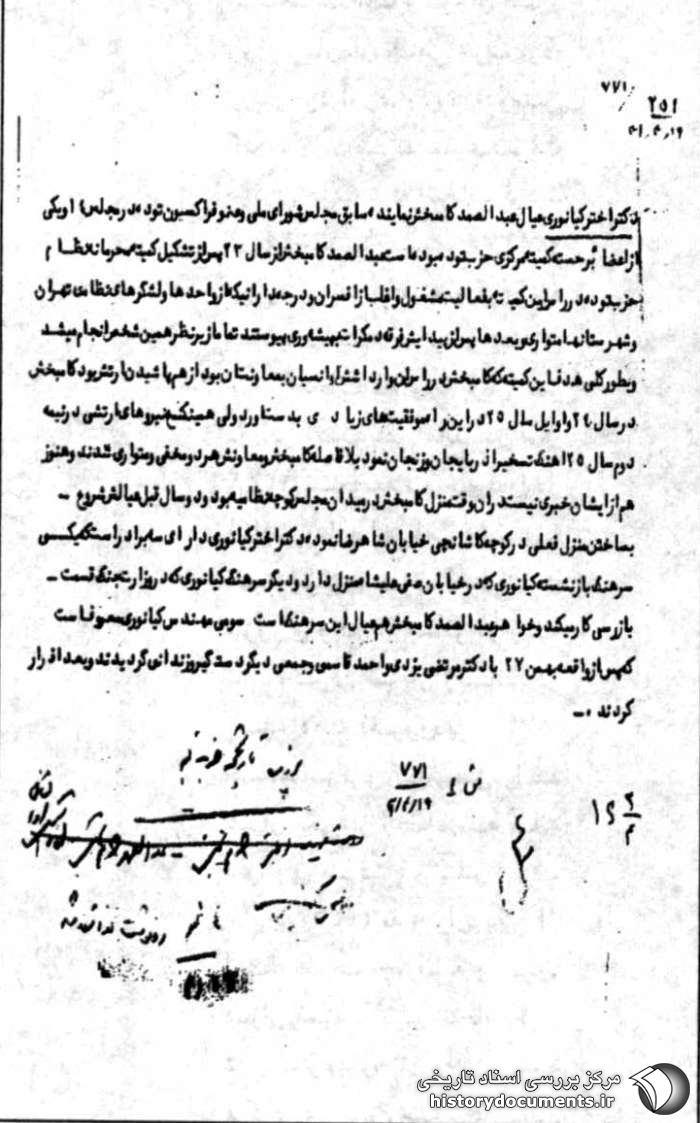 ۷۷۱
۲۵۱
۴۱٫۴٫۱۶
دکتر اختر کیانوری عیال عبدالصمد کامبخش نماینده سابق مجلس شورای ملی و عضو فراکسیون توده در مجلس ۱ و یکی
از اعضا برجسته کمیته مرکزی حزب توده بوده است عبدالصمد کامبخش از سال ۲۳ پس از تشکیل کمیته محرمانه نظام
حزب توده در راس این کمیته بفعالیت مشغول و اغلب از افسران و درجه دارانیکه از واحدها و لشگرهای نظامی تهران
و شهرستانها متواری و بعدها پس از پیدایش فرقه دمکرات پیشه‌وری پیوستند تماما زیر نظر همین شخص انجام میشد
و بطور کلی هدف این کمیته که کامبخش در راس آن وارد اشرار و انسیان بمعاونتان بود از هم پاشیدن ارتش بود کامبخش
در سال ۲۴ و اوایل سال ۲۵ در این راه موفقیت‌های زیادی بدست آورد ولی همینکه نیروهای ارتشی در نیمه
دوم سال ۲۵ آهنگ تسخیر آذربایجان و زنجان نمود بلافاصله کامبخش و معاونش هر دو مخفی و متواری شدند و هنوز
هم از ایشان خبری نیست در آن وقت منزل کامبخش در میدان مجلس کوچه نظامیه بود و دو سال قبل عیالش شروع –
بساختن منزل فعلی در کوچه کاشانچی خیابان شاهرضا نموده دکتر اختر کیانوری دارای سه برادر است که یکی
سرهنگ بازنشسته کیانوری که در خیابان صفی علیشاه منزل دارد و دیگر سرهنگ کیانوری که در وزارت جنگ قسمت –
بازرسی کار میکند و خواهر عبدالصمد کامبخش هم عیال این سرهنگ است سومی مهندس کیانوری معروف است
که پس از واقعه بهمن ۲۷ با دکتر مرتضی یزدی و احمد قاسمی و جمعی دیگر دستگیر و زندانی گردیدند و بعدا فرار
کردند .–
۷۷۱
۴/۴/۱۶
مرکز بررسی اسناد تاریخی
historydocuments.ir